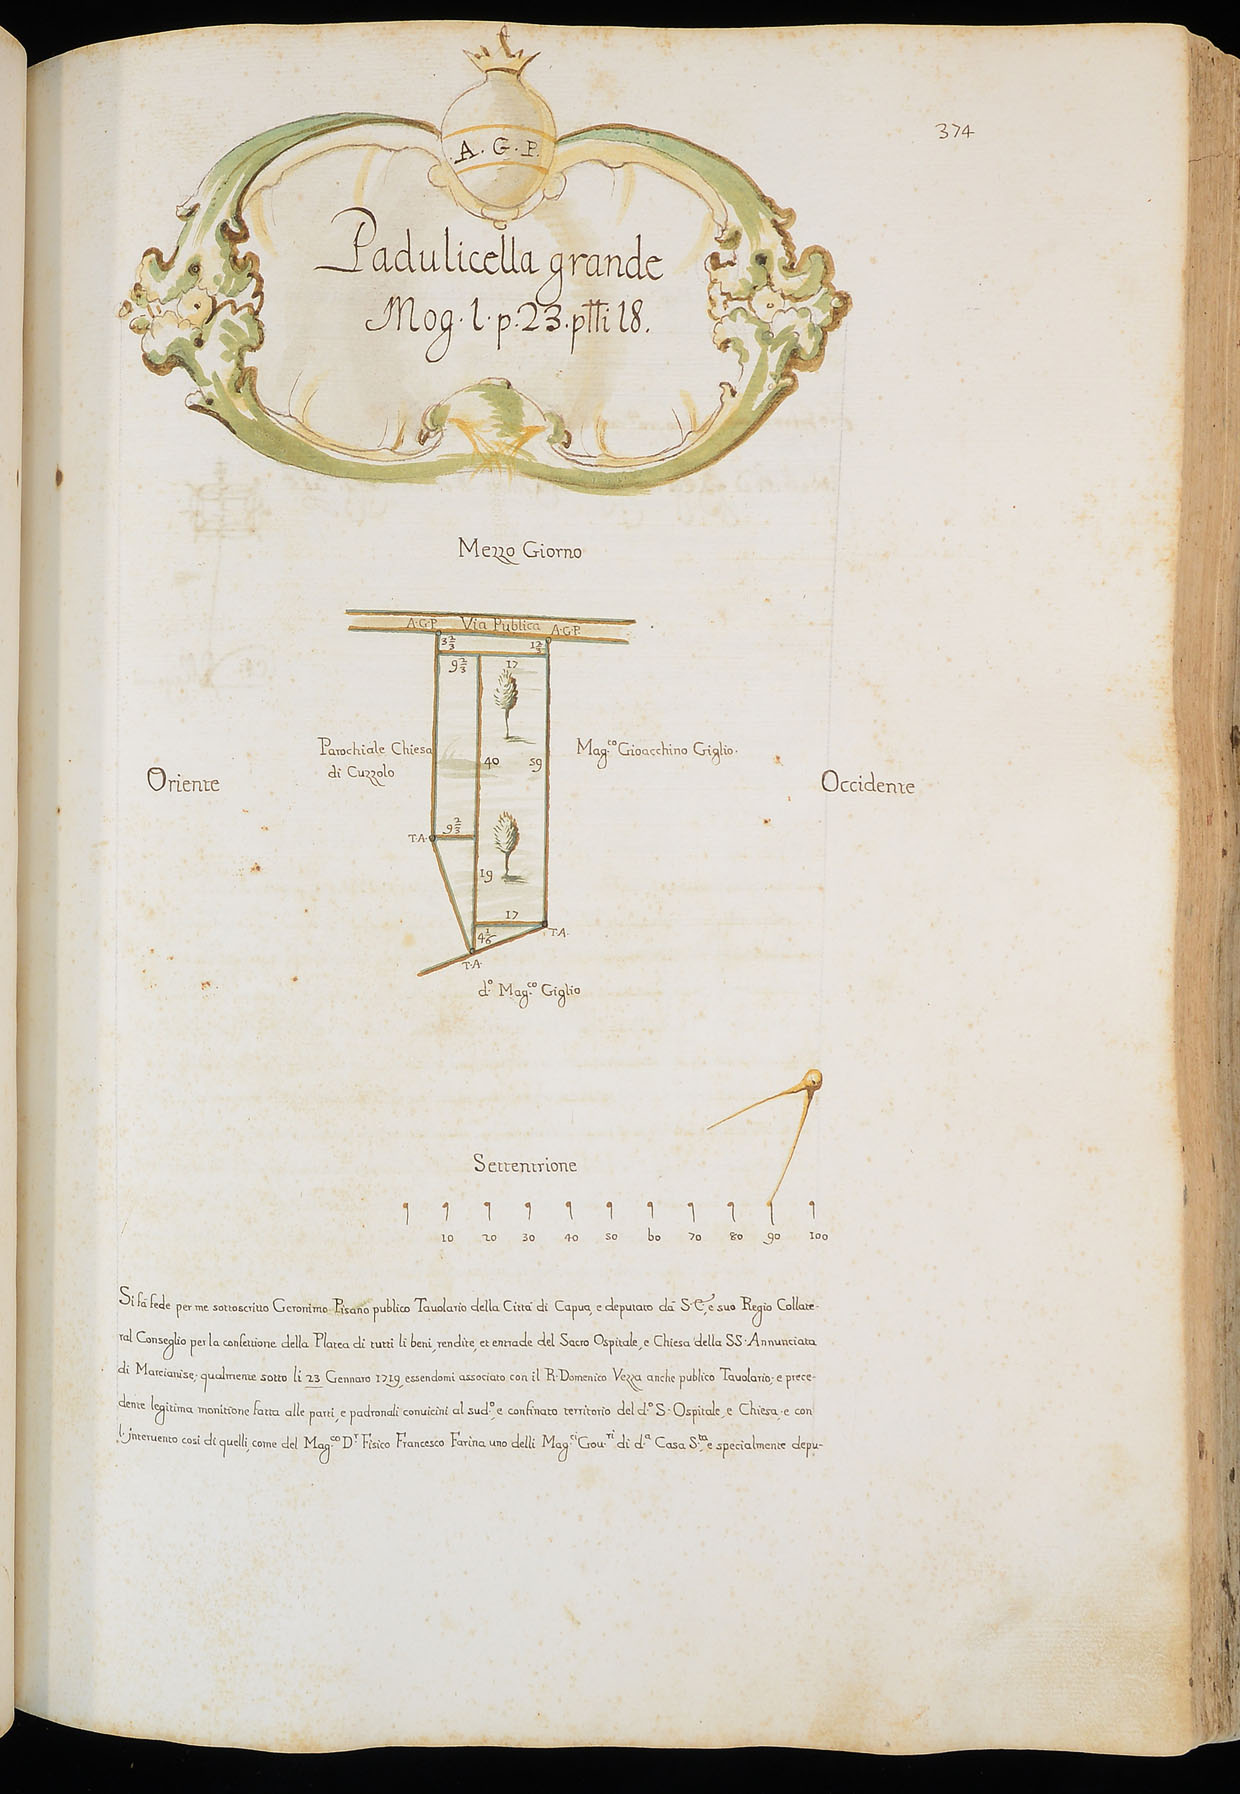 374
A. G. P.
Padulicella grande
Mog. 1. p. 23. ptti 18.
Mezzo Giorno
A.G.P. Via Publica A.G.P.
3 2/3
1 2/3
9 2/3
17
Parochiale Chiesa
di Cuzzolo
Oriente
40
59
Mag.co Gioacchino Giglio.
Occidente
9 2/3
T.A.
19
17
4 1/6
T.A.
T.A.
d.o Mag.co Giglio
Settentrione
10 20 30 40 50 60 70 80 90 100
Si fà fede per me sottoscritto Geronimo Pisano publico Tavolario della Città di Capua, e deputato dà S. E., e suo Regio Collate-
ral Conseglio per la confettione della Platea di tutti li beni, rendite, et entrade del Sacro Ospitale, e Chiesa della SS. Annunciata
di Marcianise; qualmente sotto li 23 Gennaro 1719, essendomi associato con il R. Domenico Vezza anche publico Tavolario; e prece-
dente legitima monitione fatta alle parti, e padronali convicini al sud.o, e confinato territorio del d.o S. Ospitale, e Chiesa, e con
l'intervento così di quelli, come del Mag.co D.r Fisico Francesco Farina uno delli Mag.ci Gov.ri di d.a Casa S.ta, e specialmente depu-